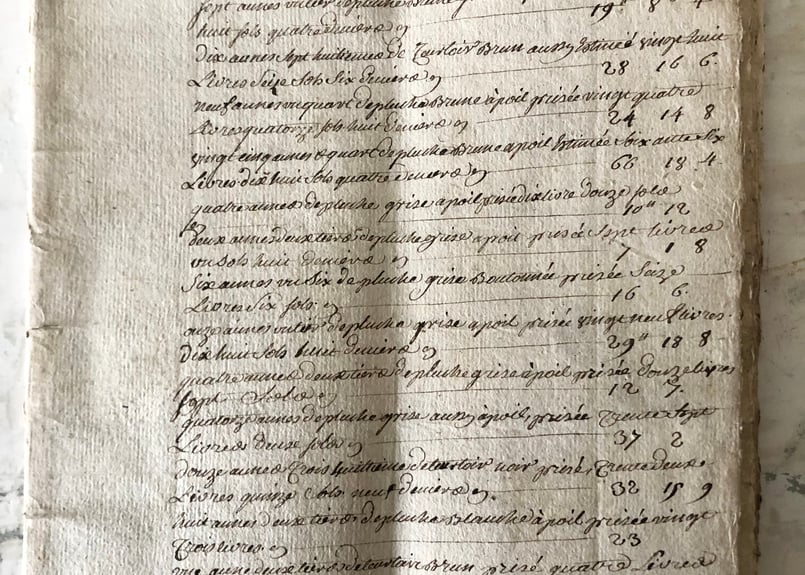 sept aunes un tier de pluche
huit sols quatre deniers 19 8 4
dix aunes sept huitiemes de Turloir Brun aussy Estimée vingt huit
Livres Seize Sols Six deniers 28 16 6.
neuf aunes un quart de pluche Brune a poil prisée vingt quatre
Livres quatorze sols huit deniers 24 14 8
vingt cinq aunes & quart de pluche Brune a poil Estimée Soixante Six
Livres dix huit Sols quatre deniers 66 18 4
quatre aunes de pluche grise a poil prisé dix livre douze sols
10" 12
deux aunes deux tiers de pluche grise a poil prisée Sept livres
un sols huit deniers 7 1 8
Six aunes un Six de pluche grise Boutonnée prisée Seize
Livres Six sols 16 6.
onze aunes un tier de pluche grise a poil prisée vingt neuf Livres
dix huit Sols huit deniers 29" 18 8
quatre aunes deux tiers de pluche grise a poil prisée douze livres
sept Sols 12 7.
quatorze aunes de pluche grise aussy a poil, prisée Trente Sept
Livres deux sols 37 2
douze aunes Trois huitieme de turloir noir prisé, Trente deux
Livres quinze Sols neuf deniers 32 15 9
huit aunes deux tiers de pluche Blanche à poil prisée vingt
Trois livres 23
une aune deux tiers de turloir Brun prisé quatre Livres